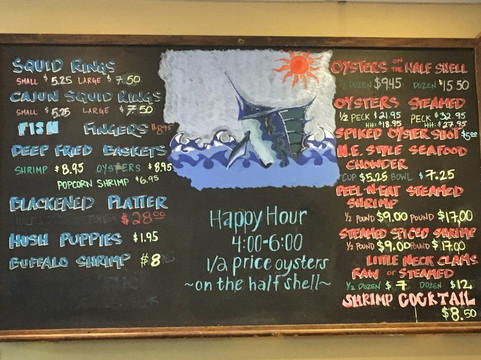 SQUID RINGS
SMALL $5.25 LARGE $7.50
CAJUN SQUID RINGS
SMALL $5.75 LARGE $7.50
FISH FINGERS $8.95
DEEP FRIED BASKETS
SHRIMP $8.95 OYSTERS $8.95
POPCORN SHRIMP $6.95
BLACKENED PLATTER
$28.00
HUSH PUPPIES $1.95
BUFFALO SHRIMP $8
Happy Hour
4:00-6:00
1/2 price oysters
~on the half shell~
OYSTERS ON THE HALF SHELL
1/2 DOZEN $9.45 DOZEN $15.50
OYSTERS STEAMED
1/2 PECK $21.95 PECK $32.95
HH $18.95 HH $27.95
SPIKED OYSTER SHOT $5.00
N.E. STYLE SEAFOOD
CHOWDER
CUP $5.25 BOWL $7.25
PEEL-N-EAT STEAMED
SHRIMP
1/2 POUND $9.00 POUND $17.00
STEAMED SPICED SHRIMP
1/2 POUND $9.00 POUND $17.00
LITTLE NECK CLAMS
RAW OR STEAMED
1/2 DOZEN $7 DOZEN $12
SHRIMP COCKTAIL
$8.50